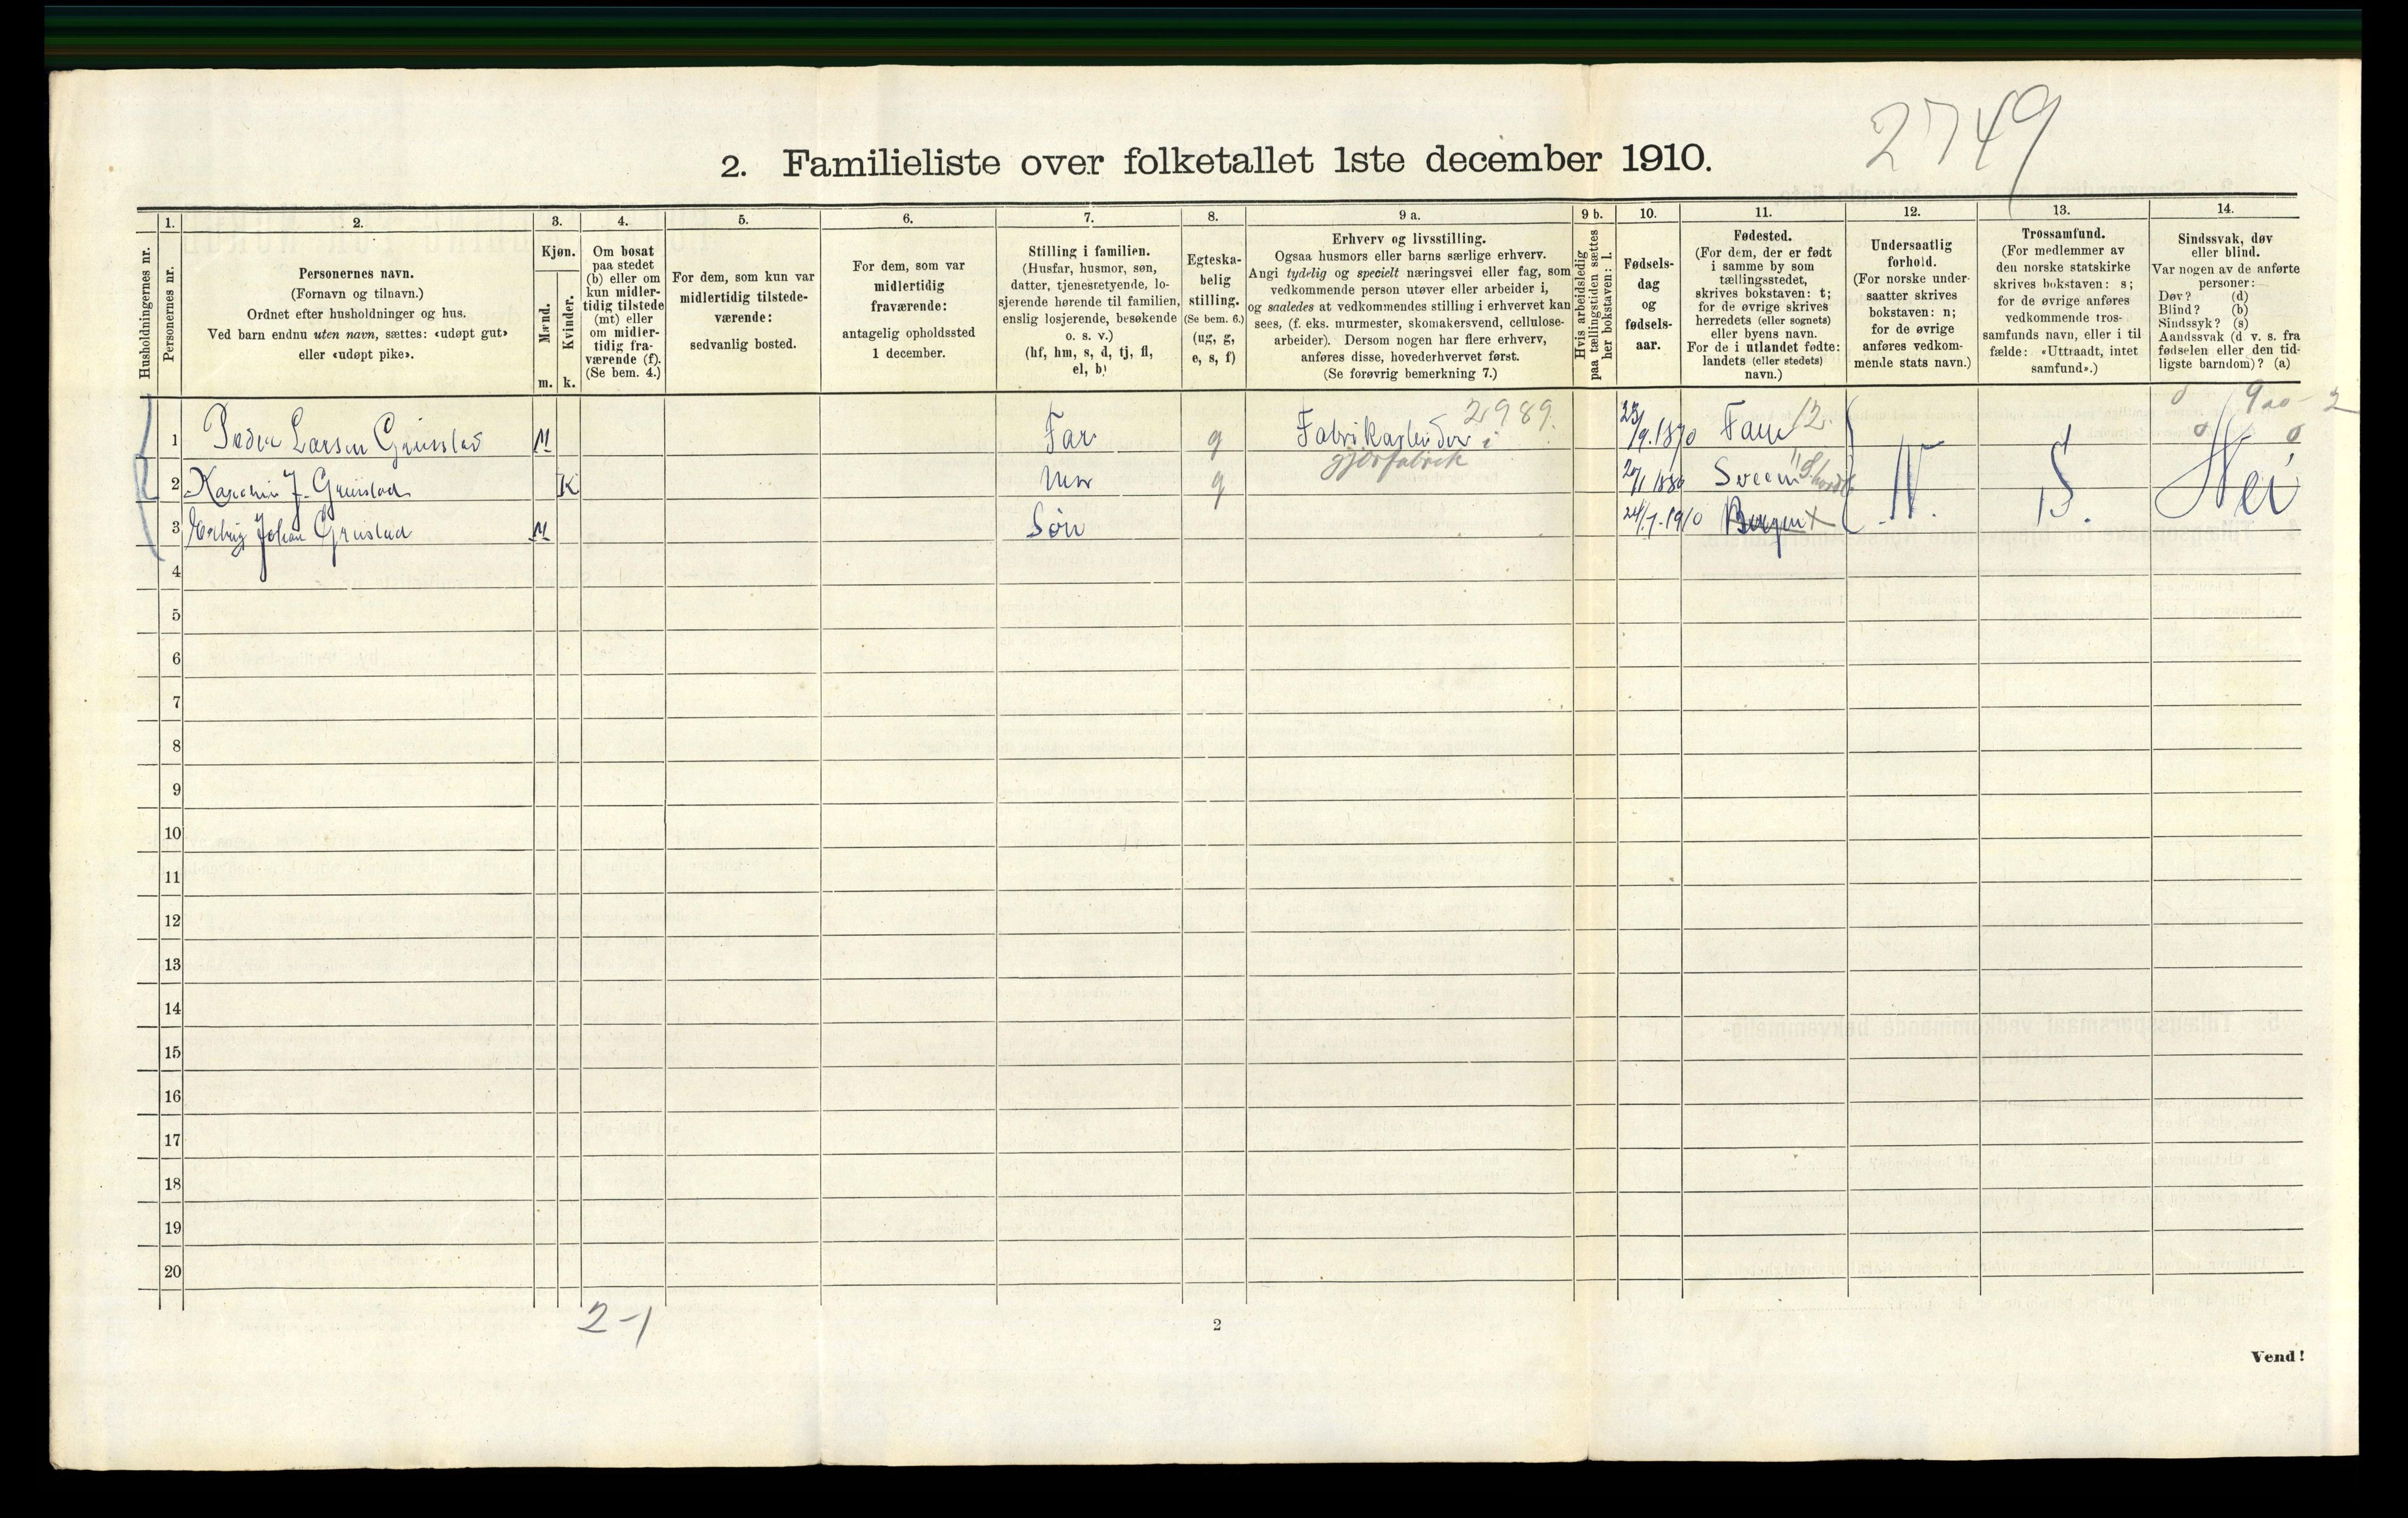 2749
2. Familieliste over folketallet 1ste december 1910.
Husholdningernes nr.
1.
Personernes nr.
2.
Personernes navn.
(Fornavn og tilnavn.)
Ordnet efter husholdninger og hus.
Ved barn endnu uten navn, sættes: «udøpt gut»
eller «udøpt pike».
3.
Kjøn.
Mænd.
Kvinder.
m. k.
4.
Om bosat
paa stedet
(b) eller om
kun midler-
tidig tilstede
(mt) eller
om midler-
tidig fra-
værende (f).
(Se bem. 4.)
5.
For dem, som kun var
midlertidig tilstede-
værende:
sedvanlig bosted.
6.
For dem, som var
midlertidig
fraværende:
antagelig opholdssted
1 december.
7.
Stilling i familien.
(Husfar, husmor, søn,
datter, tjenestetyende, lo-
sjerende hørende til familien,
enslig losjerende, besøkende
o. s. v.)
(hf, hm, s, d, tj, fl,
el, b)
8.
Egteska-
belig
stilling.
(Se bem. 6.)
(ug, g,
e, s, f)
9 a.
Erhverv og livsstilling.
Ogsaa husmors eller barns særlige erhverv.
Angi tydelig og specielt næringsvei eller fag, som
vedkommende person utøver eller arbeider i,
og saaledes at vedkommendes stilling i erhvervet kan
sees, (f. eks. murmester, skomakersvend, cellulose-
arbeider). Dersom nogen har flere erhverv,
anføres disse, hovederhvervet først.
(Se forøvrig bemerkning 7.)
9 b.
Hvis arbeidsledig
paa tællingstiden sættes
her bokstaven: l.
10.
Fødsels-
dag
og
fødsels-
aar.
11.
Fødested.
(For dem, der er født
i samme by som
tællingsstedet,
skrives bokstaven: t;
for de øvrige skrives
herredets (eller sognets)
eller byens navn.
For de i utlandet fødte:
landets (eller stedets)
navn.)
12.
Undersaatlig
forhold.
(For norske under-
saatter skrives
bokstaven: n;
for de øvrige
anføres vedkom-
mende stats navn.)
13.
Trossamfund.
(For medlemmer av
den norske statskirke
skrives bokstaven: s;
for de øvrige anføres
vedkommende tros-
samfunds navn, eller i til-
fælde: «Uttraadt, intet
samfund».)
14.
Sindssvak, døv
eller blind.
Var nogen av de anførte
personer:
Døv? (d)
Blind? (b)
Sindssyk? (s)
Aandssvak (d. v. s. fra
fødselen eller den tid-
ligste barndom)? (a)
1 Peder Larsen M Far g 2989. i 12.
gjærfabrik
2 J. K Mor g
3 Johan M Søn Bergen X N. S. Nei
4
5
6
7
8
9
10
11
12
13
14
15
16
17
18
19
20
2-1
2
Vend!